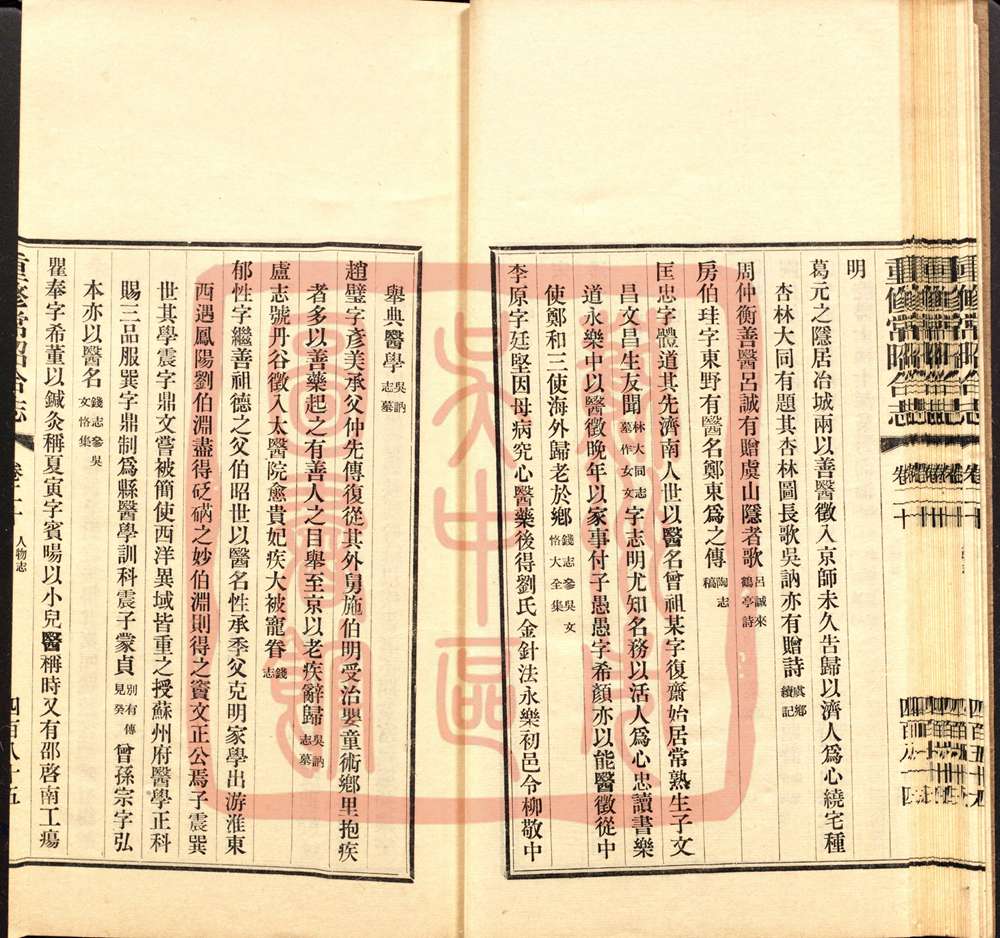 明
葛元之隱居冶城兩以善醫徵入京師未久告歸以濟人爲心繞宅種
杏林大同有題其杏林圖長歌吳訥亦有贈詩虞鄉續記
周仲衡善醫呂誠有贈虞山隱者歌呂誠來鶴亭詩
房伯珪字東野有醫名鄭東爲之傳陶志稿
匡忠字體道其先濟南人世以醫名曾祖某字復齋始居常熟生子文
昌文昌生友聞林大同志墓作女文字志明尤知名務以活人爲心忠讀書樂
道永樂中以醫徵晚年以家事付子愚愚字希顏亦以能醫徵從中
使鄭和三使海外歸老於鄉錢志參吳文恪大全集
李原字廷堅因母病究心醫藥後得劉氏金針法永樂初邑令柳敬中
舉典醫學吳訥志墓
趙璧字彥美承父仲先傳復從其外舅施伯明受治嬰童術鄉里抱疾
者多以善藥起之有善人之目舉至京以老疾辭歸吳訥志墓
盧志號丹谷徵入太醫院愈貴妃疾大被寵眷錢志
郁性字繼善祖德之父伯昭世以醫名性承季父克明家學出游淮東
西遇鳳陽劉伯淵盡得砭焫之妙伯淵則得之竇文正公焉子震巽
世其學震字鼎文嘗被簡使西洋異域皆重之授蘇州府醫學正科
賜三品服巽字鼎制爲縣醫學訓科震子蒙貞別有傳見癸曾孫宗字弘
本亦以醫名錢志參吳文恪集
瞿奉字希董以鍼灸稱夏寅字賓暘以小兒醫稱時又有邵啓南工瘍
重修常昭合志
卷二十
人物志
四百八十五
重修常昭合志
卷二十
四百八十四